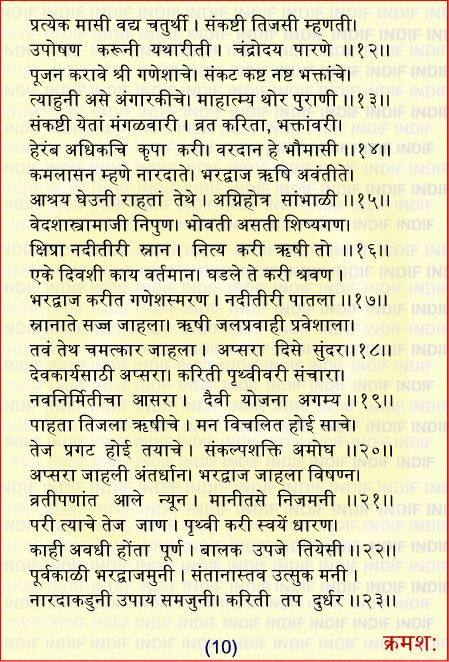 प्रत्येक मासी वद्य चतुर्थी । संकष्टी तिजसी म्हणती।
उपोषण करूनी यथारीती । चंद्रोदय पारणे ।।१२।।
पूजन करावे श्री गणेशाचे। संकट कष्ट नष्ट भक्तांचे।
त्याहुनी असे अंगारकीचे। माहात्म्य थोर पुराणी ।।१३।।
संकष्टी येतां मंगळवारी। व्रत करिता, भक्तांवरी।
हेरंब अधिकचि कृपा करी। वरदान हे भौमासी ।।१४।।
कमलासन म्हणे नारदाते। भरद्वाज ऋषि अवंतीते।
आश्रय घेउनी राहतां तेथे । अग्निहोत्र सांभाळी ।।१५।।
वेदशास्त्रामाजी निपुण। भोवती असती शिष्यगण।
क्षिप्रा नदीतीरी स्नान । नित्य करी ऋषी तो ।।१६।।
एके दिवशी काय वर्तमान। घडले ते करी श्रवण ।
भरद्वाज करीत गणेशस्मरण । नदीतीरी पातला ।।१७।।
स्नानाते सज्ज जाहला। ऋषी जलप्रवाही प्रवेशला।
तवं तेथ चमत्कार जाहला। अप्सरा दिसे सुंदर।।१८।।
देवकार्यसाठी अप्सरा। करिती पृथ्वीवरी संचारा।
नवनिर्मितीचा आसरा। दैवी योजना अगम्य ।।१९।।
पाहता तिजला ऋषीचे । मन विचलित होई साचे।
तेज प्रगट होई तयाचे। संकल्पशक्ति अमोघ ।।२०।।
अप्सरा जाहली अंतर्धान। भरद्वाज जाहला विषण्न।
व्रतीपणांत आले न्यून। मानीतसे निजमनी ।।२१।।
परी त्याचे तेज जाण। पृथ्वी करी स्वयें धारण।
काही अवधी होंता पूर्ण । बालक उपजे तियेसी ।।२२।।
पूर्वकाळी भरद्वाजमुनी। संतानास्तव उत्सुक मनी ।
नारदाकडुनी उपाय समजुनी। करिती तप दुर्धर ।।२३।।
(10)
क्रमश:
INDIF